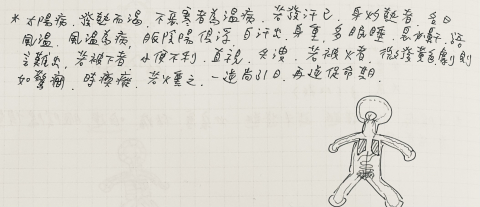 * 太陽病,發熱而渴,不惡寒者為溫病,若發汗已,身灼熱者,名曰
風溫,風溫為病,脈陰陽俱浮,自汗出,身重,多眠睡,息必鼾,語
言難出,若被下者,小便不利,直視,失溲,若被火者,微發黃色,劇則
如驚癇,時瘛瘲,若火熏之,一逆尚引日,再逆促命期.